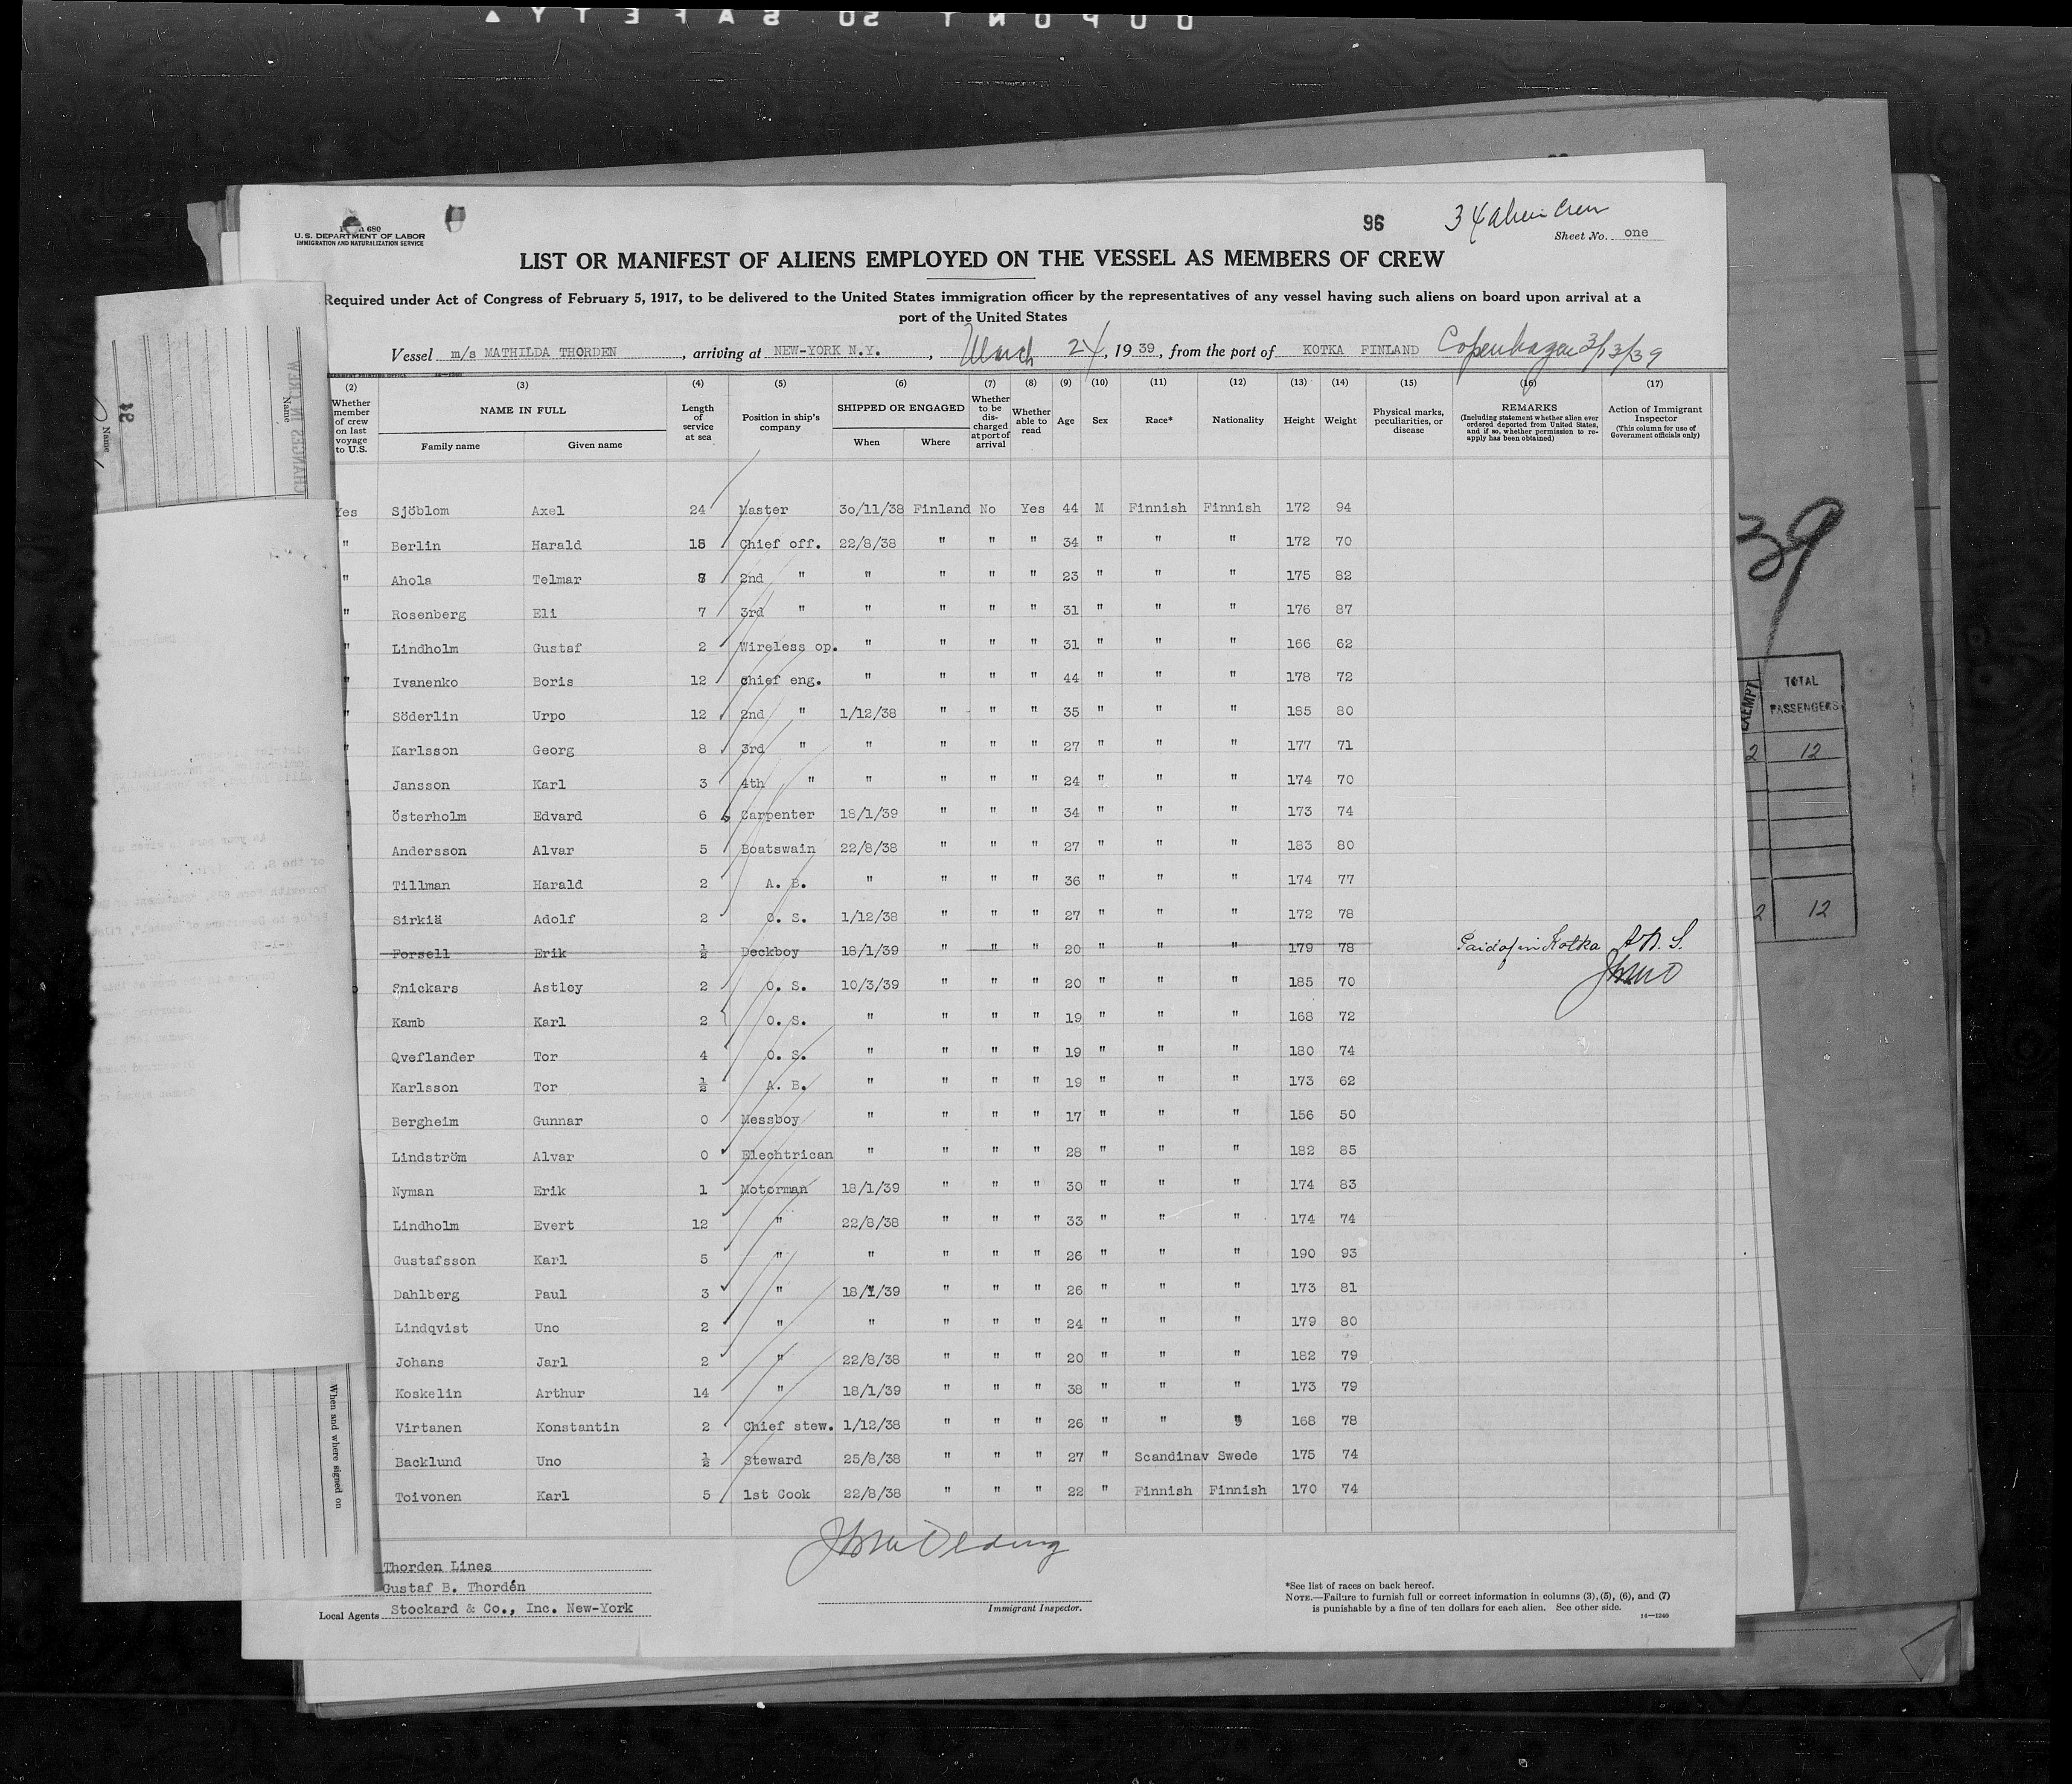 DUPONT S SAFETY
96
34 alien crew
Form 680
U.S. DEPARTMENT OF LABOR
IMMIGRATION AND NATURALIZATION SERVICE
Sheet No. one
LIST OR MANIFEST OF ALIENS EMPLOYED ON THE VESSEL AS MEMBERS OF CREW
Required under Act of Congress of February 5, 1917, to be delivered to the United States immigration officer by the representatives of any vessel having such aliens on board upon arrival at a
port of the United States
Vessel m/s MATHILDA THORDEN, arriving at NEW-YORK N.Y., March 24, 1939, from the port of KOTKA FINLAND Copenhagen 3/13/39
(2) (3) (4) (5) (6) (7) (8) (9) (10) (11) (12) (13) (14) (15) (16) (17)
Whether member of crew on last voyage to U.S.
NAME IN FULL
Family name Given name
Length of service at sea
Position in ship's company
SHIPPED OR ENGAGED
When Where
Whether to be discharged at port of arrival
Whether able to read
Age
Sex
Race*
Nationality
Height
Weight
Physical marks, peculiarities, or disease
REMARKS
(Including statement whether alien ever ordered deported from United States, and if so, whether permission to reapply has been obtained)
Action of Immigrant Inspector
(This column for use of Government officials only)
Yes Sjöblom Axel 24 Master 30/11/38 Finland No Yes 44 M Finnish Finnish 172 94
" Berlin Harald 18 Chief off. 22/8/38 " " " 34 " " " 172 70
" Ahola Telmar 2nd " " " " " 23 " " " 175 82
" Rosenberg Eli 7 3rd " " " " " 31 " " " 176 87
" Lindholm Gustaf 2 Wireless op. " " " " 31 " " " 166 62
" Ivanenko Boris 12 chief eng. " " " " 44 " " " 178 72
" Söderlin Urpo 12 2nd " 1/12/38 " " " 35 " " " 185 80
" Karlsson Georg 8 3rd " " " " " 27 " " " 177 71
" Jansson Karl 3 4th " " " " " 24 " " " 174 70
Österholm Edvard 6 Carpenter 18/1/39 " " " 34 " " " 173 74
Andersson Alvar 5 Boatswain 22/8/38 " " " 27 " " " 183 80
Tillman Harald 2 A. B. " " " " 36 " " " 174 77
Sirkiä Adolf 2 O. S. 1/12/38 " " " 27 " " " 172 78
Forsell Erik ½ Deckboy 18/1/39 " " " 20 " " " 179 78 Paid of in Kotka
Snickars Astley 2 O. S. 10/3/39 " " " 20 " " " 185 70
Kamb Karl 2 O. S. " " " " 19 " " " 168 72
Qveflander Tor 4 O. S. " " " " 19 " " " 180 74
Karlsson Tor ½ A. B. " " " " 19 " " " 173 62
Bergheim Gunnar 0 Messboy " " " " 17 " " " 156 50
Lindström Alvar 0 Elechtrican " " " " 28 " " " 182 85
Nyman Erik 1 Motorman 18/1/39 " " " 30 " " " 174 83
Lindholm Evert 12 " 22/8/38 " " " 33 " " " 174 74
Gustafsson Karl 5 " " " " " 26 " " " 190 93
Dahlberg Paul 3 " 18/1/39 " " " 26 " " " 173 81
Lindqvist Uno 2 " " " " " 24 " " " 179 80
Johans Jarl 2 " 22/8/38 " " " 20 " " " 182 79
Koskelin Arthur 14 " 18/1/39 " " " 38 " " " 173 79
Virtanen Konstantin 2 Chief stew. 1/12/38 " " " 26 " " " 168 78
Backlund Uno ½ Steward 25/8/38 " " " 27 " Scandinav Swede 175 74
Toivonen Karl 5 1st Cook 22/8/38 " " " 22 " Finnish Finnish 170 74
Thorden Lines
Gustaf B. Thordén
Local Agents Stockard & Co., Inc. New-York
Immigrant Inspector.
*See list of races on back hereof.
NOTE.—Failure to furnish full or correct information in columns (3), (5), (6), and (7)
is punishable by a fine of ten dollars for each alien. See other side.
14—1240
39
EXEMPT TOTAL PASSENGERS
2 12
2 12
Name
CHANGES IN CREW
Name
When and where signed on